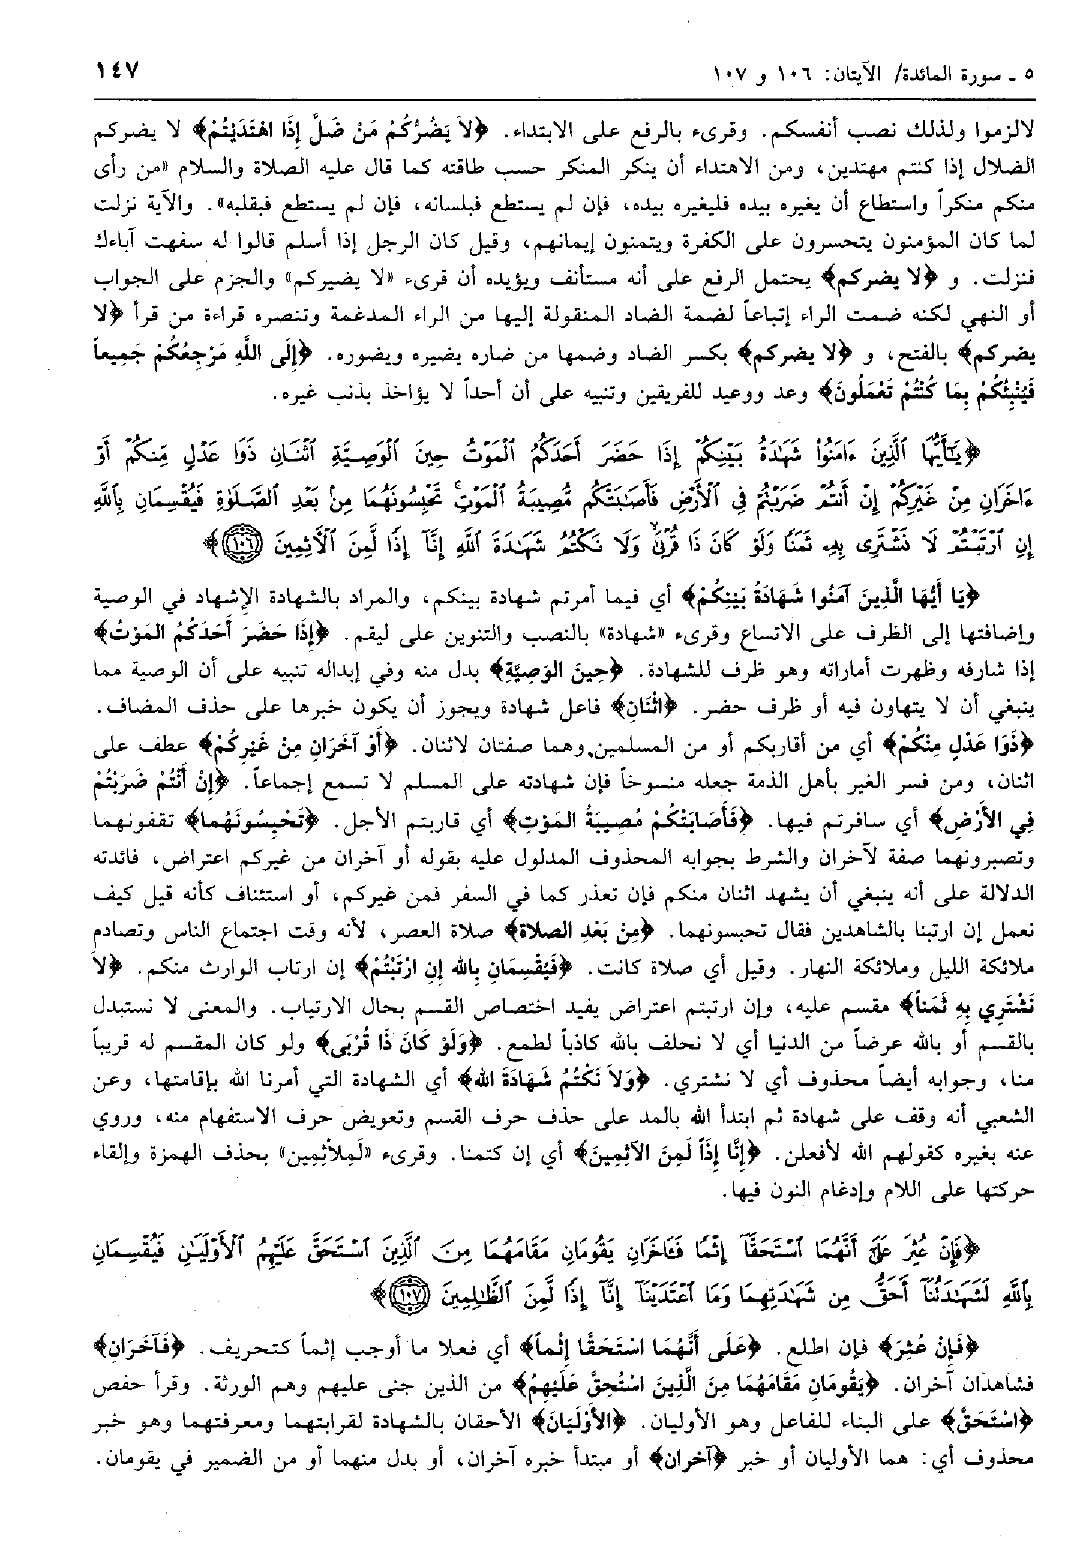 ٥ ـ سورة المائدة/ الآيتان: ١٠٦ و ١٠٧ ١٤٧
لالزموا ولذلك نصب أنفسكم. وقرىء بالرفع على الابتداء. ﴿لاَ يَضُرُّكُمْ مَنْ ضَلَّ إِذَا اهْتَدَيْتُمْ﴾ لا يضركم
الضلال إذا كنتم مهتدين، ومن الاهتداء أن ينكر المنكر حسب طاقته كما قال عليه الصلاة والسلام «من رأى
منكم منكراً واستطاع أن يغيره بيده فليغيره بيده، فإن لم يستطع فبلسانه، فإن لم يستطع فبقلبه». والآية نزلت
لما كان المؤمنون يتحسرون على الكفرة ويتمنون إيمانهم، وقيل كان الرجل إذا أسلم قالوا له سفهت آباءك
فنزلت. و ﴿لا يضركم﴾ يحتمل الرفع على أنه مستأنف ويؤيده أن قرىء «لا يضيركم» والجزم على الجواب
أو النهي لكنه ضمت الراء إتباعاً لضمة الضاد المنقولة إليها من الراء المدغمة وتنصره قراءة من قرأ ﴿لا
يضركم﴾ بالفتح، و ﴿لا يضركم﴾ بكسر الضاد وضمها من ضاره يضيره ويضوره. ﴿إِلَى اللَّهِ مَرْجِعُكُمْ جَمِيعاً
فَيُنَبِّئُكُمْ بِمَا كُنْتُمْ تَعْمَلُونَ﴾ وعد ووعيد للفريقين وتنبيه على أن أحداً لا يؤاخذ بذنب غيره.
﴿يَـٰٓأَيُّهَا ٱلَّذِينَ ءَامَنُوا۟ شَهَـٰدَةُ بَيْنِكُمْ إِذَا حَضَرَ أَحَدَكُمُ ٱلْمَوْتُ حِينَ ٱلْوَصِيَّةِ ٱثْنَانِ ذَوَا عَدْلٍ مِّنكُمْ أَوْ
ءَاخَرَانِ مِنْ غَيْرِكُمْ إِنْ أَنتُمْ ضَرَبْتُمْ فِى ٱلْأَرْضِ فَأَصَـٰبَتْكُم مُّصِيبَةُ ٱلْمَوْتِ ۚ تَحْبِسُونَهُمَا مِنۢ بَعْدِ ٱلصَّلَوٰةِ فَيُقْسِمَانِ بِٱللَّهِ
إِنِ ٱرْتَبْتُمْ لَا نَشْتَرِى بِهِۦ ثَمَنًا وَلَوْ كَانَ ذَا قُرْبَىٰ ۙ وَلَا نَكْتُمُ شَهَـٰدَةَ ٱللَّهِ إِنَّآ إِذًا لَّمِنَ ٱلْأَثِمِينَ (١٠٦)﴾
﴿يَا أَيُّهَا الَّذِينَ آمَنُوا شَهَادَةُ بَيْنِكُمْ﴾ أي فيما أمرتم شهادة بينكم، والمراد بالشهادة الإشهاد في الوصية
وإضافتها إلى الظرف على الاتساع وقرىء «شهادة» بالنصب والتنوين على ليقم. ﴿إِذَا حَضَرَ أَحَدَكُمُ المَوْتُ﴾
إذا شارفه وظهرت أماراته وهو ظرف للشهادة. ﴿حِينَ الوَصِيَّةِ﴾ بدل منه وفي إبداله تنبيه على أن الوصية مما
ينبغي أن لا يتهاون فيه أو ظرف حضر. ﴿اثْنَانِ﴾ فاعل شهادة ويجوز أن يكون خبرها على حذف المضاف.
﴿ذَوَا عَدْلٍ مِنْكُمْ﴾ أي من أقاربكم أو من المسلمين وهما صفتان لاثنان. ﴿أَوْ آخَرَانِ مِنْ غَيْرِكُمْ﴾ عطف على
اثنان، ومن فسر الغير بأهل الذمة جعله منسوخاً فإن شهادته على المسلم لا تسمع إجماعاً. ﴿إِنْ أَنْتُمْ ضَرَبْتُمْ
فِي الأَرْضِ﴾ أي سافرتم فيها. ﴿فَأَصَابَتْكُمْ مُصِيبَةُ المَوْتِ﴾ أي قاربتم الأجل. ﴿تَحْبِسُونَهُمَا﴾ تقفونهما
وتصبرونهما صفة لآخران والشرط بجوابه المحذوف المدلول عليه بقوله أو آخران من غيركم اعتراض، فائدته
الدلالة على أنه ينبغي أن يشهد اثنان منكم فإن تعذر كما في السفر فمن غيركم، أو استئناف كأنه قيل كيف
نعمل إن ارتبنا بالشاهدين فقال تحبسونهما. ﴿مِنْ بَعْدِ الصلاة﴾ صلاة العصر، لأنه وقت اجتماع الناس وتصادم
ملائكة الليل وملائكة النهار. وقيل أي صلاة كانت. ﴿فَيُقْسِمَانِ بِاللهِ إِنِ ارْتَبْتُمْ﴾ إن ارتاب الوارث منكم. ﴿لاَ
نَشْتَرِي بِهِ ثَمَناً﴾ مقسم عليه، وإن ارتبتم اعتراض يفيد اختصاص القسم بحال الارتياب. والمعنى لا نستبدل
بالقسم أو بالله عرضاً من الدنيا أي لا نحلف بالله كاذباً لطمع. ﴿وَلَوْ كَانَ ذَا قُرْبَى﴾ ولو كان المقسم له قريباً
منا، وجوابه أيضاً محذوف أي لا نشتري. ﴿وَلاَ نَكْتُمُ شَهَادَةَ الله﴾ أي الشهادة التي أمرنا الله بإقامتها، وعن
الشعبي أنه وقف على شهادة ثم ابتدأ آلله بالمد على حذف حرف القسم وتعويض حرف الاستفهام منه، وروي
عنه بغيره كقولهم الله لأفعلن. ﴿إِنَّا إِذَاً لَمِنَ الآثِمِينَ﴾ أي إن كتمنا. وقرىء «لَمِلاَثِمِين» بحذف الهمزة وإلقاء
حركتها على اللام وإدغام النون فيها.
﴿فَإِنْ عُثِرَ عَلَىٰٓ أَنَّهُمَا ٱسْتَحَقَّآ إِثْمًا فَـَٔاخَرَانِ يَقُومَانِ مَقَامَهُمَا مِنَ ٱلَّذِينَ ٱسْتَحَقَّ عَلَيْهِمُ ٱلْأَوْلَيَـٰنِ فَيُقْسِمَانِ
بِٱللَّهِ لَشَهَـٰدَتُنَآ أَحَقُّ مِن شَهَـٰدَتِهِمَا وَمَا ٱعْتَدَيْنَآ إِنَّآ إِذًا لَّمِنَ ٱلظَّـٰلِمِينَ (١٠٧)﴾
﴿فَإِنْ عُثِرَ﴾ فإن اطلع. ﴿عَلَى أَنَّهُمَا اسْتَحَقَّا إِثْماً﴾ أي فعلا ما أوجب إثماً كتحريف. ﴿فَآخَرَانِ﴾
فشاهدان آخران. ﴿يَقُومَانِ مَقَامَهُمَا مِنَ الَّذِينَ اسْتُحِقَّ عَلَيْهِمُ﴾ من الذين جنى عليهم وهم الورثة. وقرأ حفص
﴿اسْتَحَقَّ﴾ على البناء للفاعل وهو الأوليان. ﴿الأَوْلَيَانَ﴾ الأحقان بالشهادة لقرابتهما ومعرفتهما وهو خبر
محذوف أي: هما الأوليان أو خبر ﴿آخران﴾ أو مبتدأ خبره آخران، أو بدل منهما أو من الضمير في يقومان.